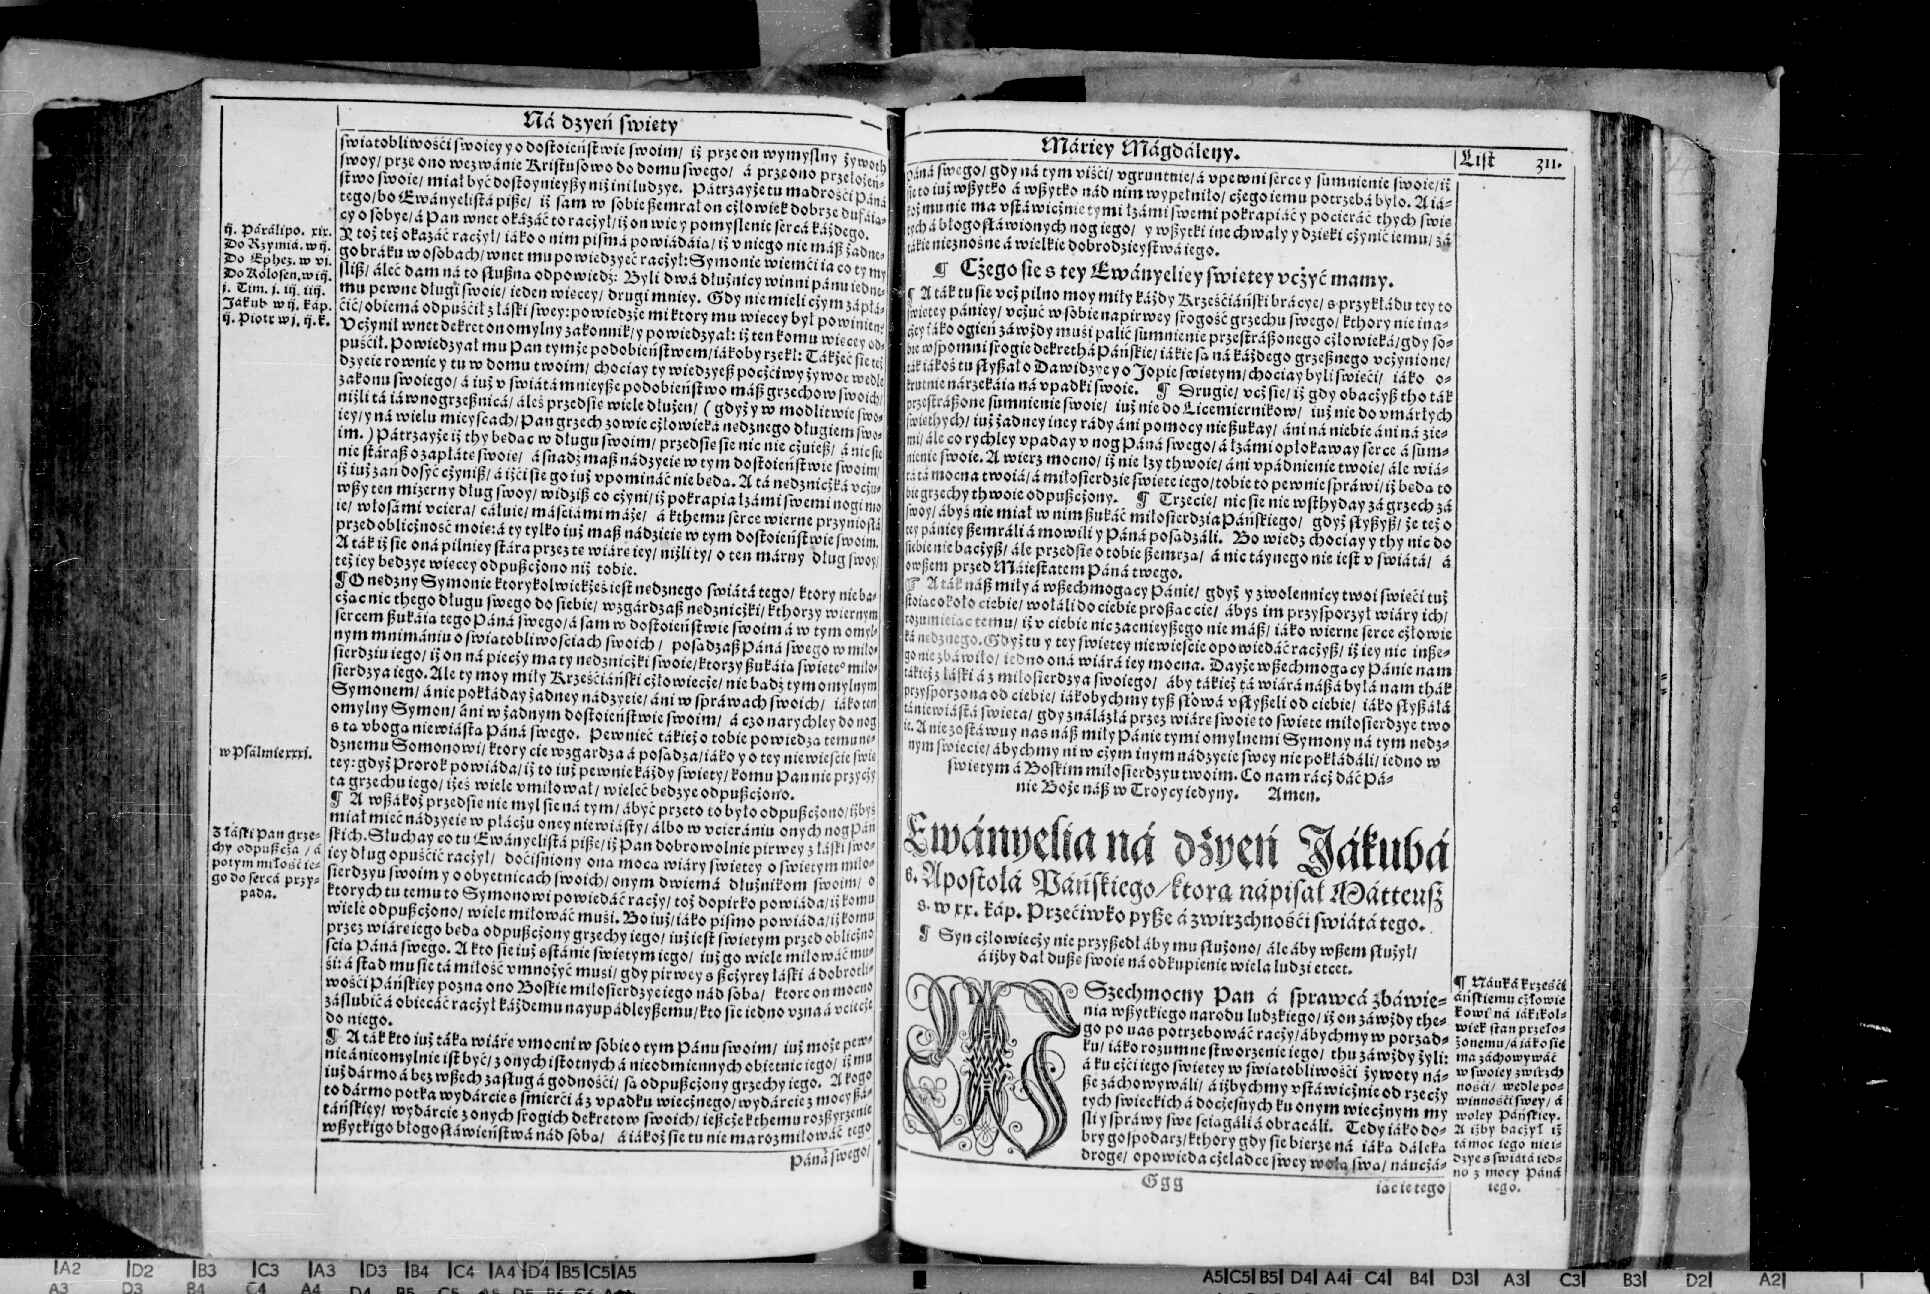 Ná dzyeń swiety
swiatobliwośći swoiey y o dostoieństwie swoim/ iż prze on wymyslny żywoth
swoy/ prze ono wezwánie Kristusowo do domu swego/ á prze ono przełożeń-
stwo swoie/ miał być dostoynieyszy niż ini ludzye. Pátrzayże tu mądrośći Páná
tego/ bo Ewányelistá pisze/ iż sam w sobie szemrał on człowiek dobrze dufáią-
cy o sobye/ á Pan wnet okázáć to raczył/ iż on wie y pomyslenie sercá káżdego.
Y toż też okázáć raczył/ iáko o nim pismá powiádáią/ iż v niego nie mász żadne-
go bráku w osobach/ wnet mu powiedzyeć raczył: Symonie wiemći ia co ty my
slisz/ áleć dam ná to słuszną odpowiedź: Byli dwá dłużnicy winni pánu iedne-
mu pewne długi swoie/ ieden więcey/ drugi mniey. Gdy nie mieli czym zápłá-
ćić/ obiemá odpuśćił z łáski swey: powiedzże mi ktory mu więcey był powinien?
Vczynił wnet dekret on omylny zakonnik/ y powiedzyał: iż ten komu więcey od-
puśćił. Powiedzyał mu Pan tymże podobieństwem/ iákoby rzekł: Tákżeć się też
dzyeie rownie y tu w domu twoim/ chociay ty wiedzyesz poczćiwy żywot wedle
zakonu swoiego/ á iuż v swiátá mnieysze podobieństwo masz grzechow swoich/
niżli tá iáwnogrzesznicá/ áleś przedsię wiele dłużen/ (gdyż y w modlitwie swo-
iey/ y ná wielu mieyscach/ Pan grzech zowie człowieká nędznego długiem swo-
im.) Pátrzayże iż thy będąc w długu swoim/ przedsię się nic nie czuiesz/ á nic się
nie stárasz o zapłátę swoię/ á snadź masz nádzyeię w tym dostoieństwie swoim/
iż iuż zań dosyć czynisz/ á iżći się go iuż vpomináć nie będą. A tá nędzniczká vczu-
wszy ten mizerny dług swoy/ widzisz co czyni/ iż pokrapia łzámi swemi nogi mo
ie/ włosámi vciera/ cáłuie/ máśćiámi máże/ á kthemu serce wierne przyniosłá
przed obliczność moię: á ty tylko iuż masz nádzieię w tym dostoieństwie swoim.
A ták iż się oná pilniey stára przez tę wiárę iey/ niżli ty/ o ten márny dług swoy/
też iey będzye więcey odpuszczono niż tobie.
¶ O nędzny Symonie ktorykolwiekżeś iest nędznego swiátá tego/ ktory nie ba-
cząc nic thego długu swego do siebie/ wzgardzasz nędzniczki/ kthorzy wiernym
sercem szukáią tego Páná swego/ á sam w dostoieństwie swoim á w tym omyl-
nym mnimániu o swiątobliwościach swoich/ posądzasz Páná swego w miło-
sierdziu iego/ iż on ná pieczy ma ty nędzniczki swoie/ ktorzy szukáią swietego miło-
sierdzya iego. Ale ty moy miły Krześćiáński człowiecze/ nie bądź tym omylnym
Symonem/ á nie pokłáday żadney nádzyeie/ áni w sprawach swoich/ iáko ten
omylny Symon/ áni w żadnym dostoieństwie swoim/ á czo narychley do nog
s tą vbogą niewiástą Páná swego. Pewnieć tákież o tobie powiedzą temu nę-
dznemu Somonowi/ ktory cię wzgardza á posądza/ iáko y o tey niewieście swię
tey: gdyż Prorok powiáda/ iż to iuż pewnie káżdy swięty/ komu Pan nie przyczy
ta grzechu iego/ iżeś wiele vmiłował/ wieleć będzye odpuszczono.
¶ A wszákoż przedsię nie myl się ná tym/ ábyć przeto to było odpuszczono/ iżbyś
miał mieć nádzyeię w płáczu oney niewiásty/ álbo w vcierániu onych nog Páń
skich. Słuchay co tu Ewányelistá pisze/ iż Pan dobrowolnie pirwey z łáski swo-
iey dług opuśćić raczył/ dociśniony oną mocą wiáry swiętey o swiętym miło-
sierdzyu swoim y o obyetnicach swoich/ onym dwiemá dłużnikom swoim/ o
ktorych tu temu to Symonowi powiedáć raczy/ toż dopirko powiáda/ iż komu
wiele odpuszczono/ wiele miłowáć musi. Bo iuż/ iáko pismo powiáda/ iż komu
przez wiárę iego będą odpuszczony grzechy iego/ iuż iest swiętym przed obliczno
ścią Páná swego. A kto się iuż sstánie swiętym iego/ iuż go wiele miłowáć mu-
śi: á stąd mu się tá miłość vmnożyć musi/ gdy pirwey s szczyrey łáski á dobrotli-
wośći Páńskiey pozna ono Boskie miłosierdzye iego nád sobą/ ktore on mocno
záslubić á obiecáć raczył káżdemu nayupádleyszemu/ kto się iedno vzna á vciecze
do niego.
¶ A ták kto iuż táką wiárę vmocni w sobie o tym Pánu swoim/ iuż może pew-
nie á nieomylnie ist być/ z onych istotnych á nieodmiennych obietnic iego/ iż mu
iuż dármo á bez wszech zasług á godnośći/ są odpuszczony grzechy iego. A kogo
to dármo potka wydárcie s śmierći á z vpadku wiecznego/ wydárcie z mocy szá-
táńskiey/ wydárcie z onych srogich dekretow swoich/ ieszcze kthemu rozszyrzenie
wszytkigo błogosłáwieństwá nád sobą/ á iákoż się tu nie ma rozmiłowáć tego
Páná swego/
ij. Párálipo. xix.
Do Rzymiá. w ij.
Do Ephez. w vj.
Do Kolosen. w iij.
j. Tim. j. iij. iiij.
Jákub w ij. káp.
ij. Piotr w j. ij. k.
w Psálmie xxxi.
Z łáski Pan grze-
chy odpuszcza/ á
potym miłość ie-
go do sercá przy-
pada.
Máriey Mágdáleny.
List 311.
Páná swego/ gdy ná tym viśći/ vgruntuie/ á vpewni serce y sumnienie swoie/ iż
się to iuż wszytko á wszytko nád nim wypełniło/ czego iemu potrzebá było. A iá-
koż mu nie ma vstáwicznie tymi łzámi swemi pokrápiáć y pocieráć thych swię
tych á błogosłáwionych nog iego/ y wszytki ine chwały y dzięki czynić iemu/ zá
tákie nieznośne á wielkie dobrodzieystwá iego.
¶ Czego się s tey Ewányeliey swietey vczyć mamy.
¶ A ták tu się vcz pilno moy miły káżdy Krześćiáński brácye/ s przykłádu tey to
swiętey pániey/ vczuć w sobie napirwey srogość grzechu swego/ kthory nie ina-
czey iáko ogień záwżdy musi palić sumnienie przestrászonego człowieká/ gdy so-
bie wspomni srogie dekrethá Páńskie/ iákie są ná káżdego grzesznego vczynione/
ták iákoś tu słyszał o Dawidzye y o Jopie swiętym/ chociay byli swięći/ iáko o-
krutnie nárzekáią ná vpadki swoie. ¶ Drugie/ vcz się/ iż gdy obaczysz tho ták
przestrászone sumnienie swoie/ iuż nie do Licemiernikow/ iuż nie do vmárłych
swięthych/ iuż żadney iney rády áni pomocy nieszukay/ áni ná niebie áni ná zie-
mi/ ále co rychley vpaday v nog Páná swego/ á łzámi opłokaway serce á sum-
nienie swoie. A wierz mocno/ iż nie łzy thwoie/ áni vpádnienie twoie/ ále wiá-
rá tá mocna twoiá/ á miłosierdzie swięte iego/ tobie to pewnie spráwi/ iż będą to
bie grzechy thwoie odpuszczony. ¶ Trzecie/ nic się nie wsthyday zá grzech zá
swoy/ ábyś nie miał w nim szukáć miłosierdzia Páńskiego/ gdyż słyszysz/ że też o
tey pániey szemráli á mowili y Páná posądzáli. Bo wiedz chociay y thy nic do
siebie nie baczysz/ ále przedsię o tobie szemrzą/ á nic táynego nie iest v swiátá/ á
owszem przed Máiestatem Páná twego.
¶ A ták nász miły á wszechmogący Pánie/ gdyż y zwolennicy twoi swięći tuż
stoiąc około ciebie/ wołáli do ciebie prosząc cię/ ábyś im przysporzył wiáry ich/
rozumieiąc temu/ iż v ciebie nic zacnieyszego nie mász/ iáko wierne serce człowie
ká nędznego. Gdyż tu y tey swiętey niewieście opowiedáć raczysz/ iż iey nic insze-
go nie zbáwiło/ iedno oná wiárá iey mocna. Dayże wszechmogący Pánie nam
tákież z łáski á z miłosierdzya swoiego/ áby tákież tá wiárá nászá byłá nam thák
przysporzona od ciebie/ iákobychmy tyż słowá vsłyszeli od ciebie/ iáko słyszáłá
tá niewiástá swięta/ gdy ználázłá przez wiárę swoię to swięte miłosierdzye two
ie. A nie zostáwuy nas nász miły Pánie tymi omylnemi Symony ná tym nędz-
nym swiecie/ ábychmy ni w czym inym nádzyeie swey nie pokłádáli/ iedno w
swiętym á Boskim miłosierdzyu twoim. Co nam rácz dáć Pá-
nie Boże nász w Troycy iedyny. Amen.
Ewányelia ná dzyeń Jákubá
s. Apostołá Páńskiego/ ktorą nápisał Mátteusz
s. w xx. káp. Przećiwko pysze á zwirzchnośći swiátá tego.
¶ Syn człowieczy nie przyszedł áby mu służono/ ále áby wszem służył/
á iżby dał duszę swoię ná odkupienie wiela ludzi etcet.
WSzechmocny Pan á sprawcá zbáwie-
nia wszytkiego narodu ludzkiego/ iż on záwżdy the-
go po nas potrzebowáć raczy/ ábychmy w porząd-
ku/ iáko rozumne stworzenie iego/ thu záwżdy żyli:
á ku czći iego swiętey w swiatobliwośći żywoty ná-
sze záchowywáli/ á iżbychmy vstáwicznie od rzeczy
tych swieckich á doczesnych ku onym wiecznym my
śli y spráwy swe ściągáli á obracáli. Tedy iáko do-
bry gospodarz/ kthory gdy się bierze ná iáką dáleką
drogę/ opowieda czeladce swey wolą swą/ náuczá-
Ggg
iąc ie tego
¶ Náuká krześći
áńskiemu człowie
kowi ná iákikol-
wiek stan przeło-
żonemu/ á iáko się
ma záchowywáć
w swoiey zwirzch
nośći/ wedle po-
winnośći swey/ á
woley Páńskiey.
A iżby baczył iż
tá moc iego nie i-
dzye s swiátá ied-
no z mocy Páná
iego.
A2 D2 B3 C3 A3 D3 B4 C4 A4 D4 B5 C5 A5
A5 C5 B5 D4 A4 C4 B4 D3 A3 C3 B3 D2 A2
A3 D3 B4 C4 A4 D4 B5 C5